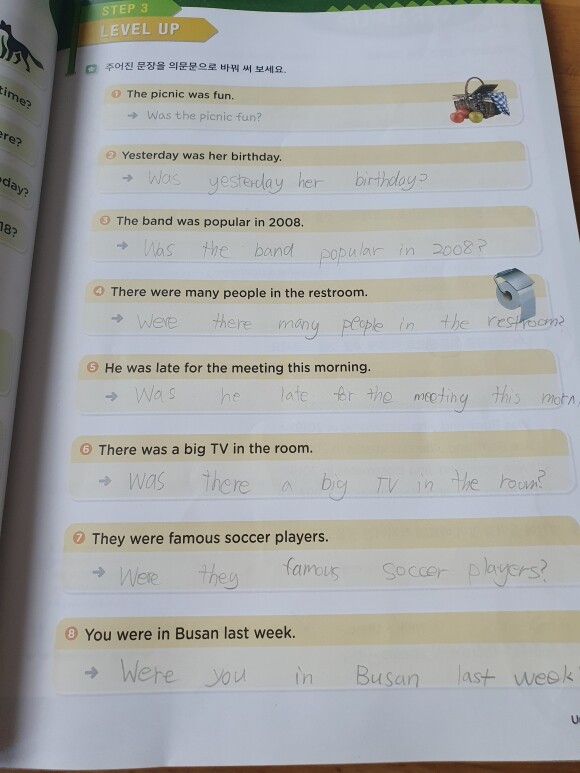 STEP 3
LEVEL UP
time?
ere?
day?
18?
주어진 문장을 의문문으로 바꿔 써 보세요.
1 The picnic was fun.
→ Was the picnic fun?
2 Yesterday was her birthday.
→ Was yesterday her birthday?
3 The band was popular in 2008.
→ Was the band popular in 2008?
4 There were many people in the restroom.
→ Were there many people in the restroom?
5 He was late for the meeting this morning.
→ Was he late for the meeting this morn
6 There was a big TV in the room.
→ Was there a big TV in the room?
7 They were famous soccer players.
→ Were they famous soccer players?
8 You were in Busan last week.
→ Were you in Busan last week?